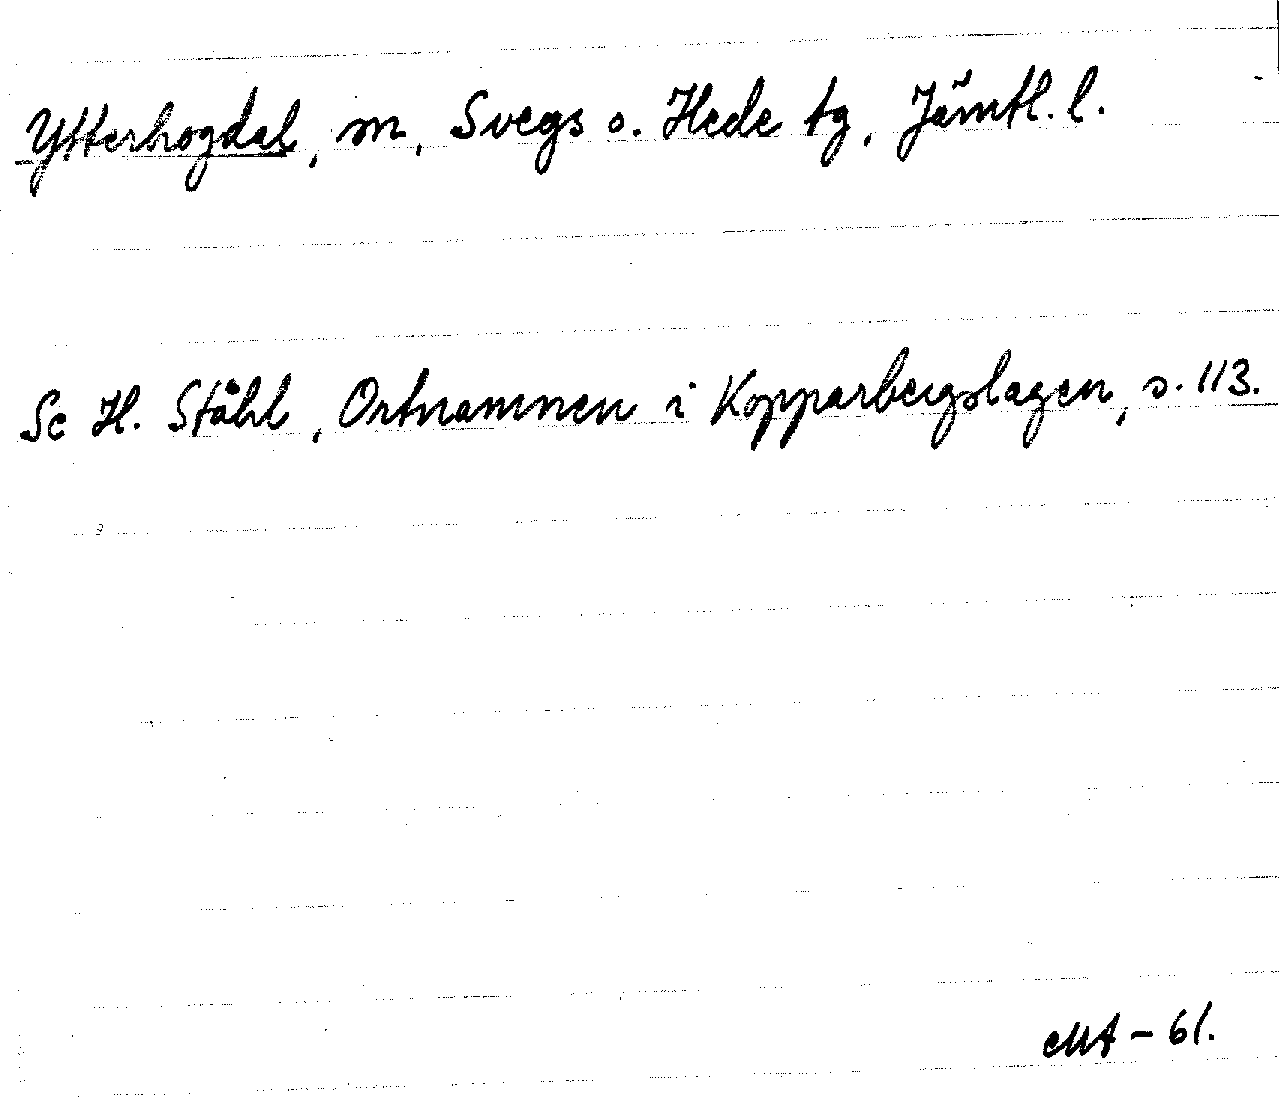 Ytterhogdal, sn, Svegs o. Hede tg, Jämtl. l.
Se H. Ståhl, Ortnamnen i Kopparbergslagen, s. 113.
MA - 61.